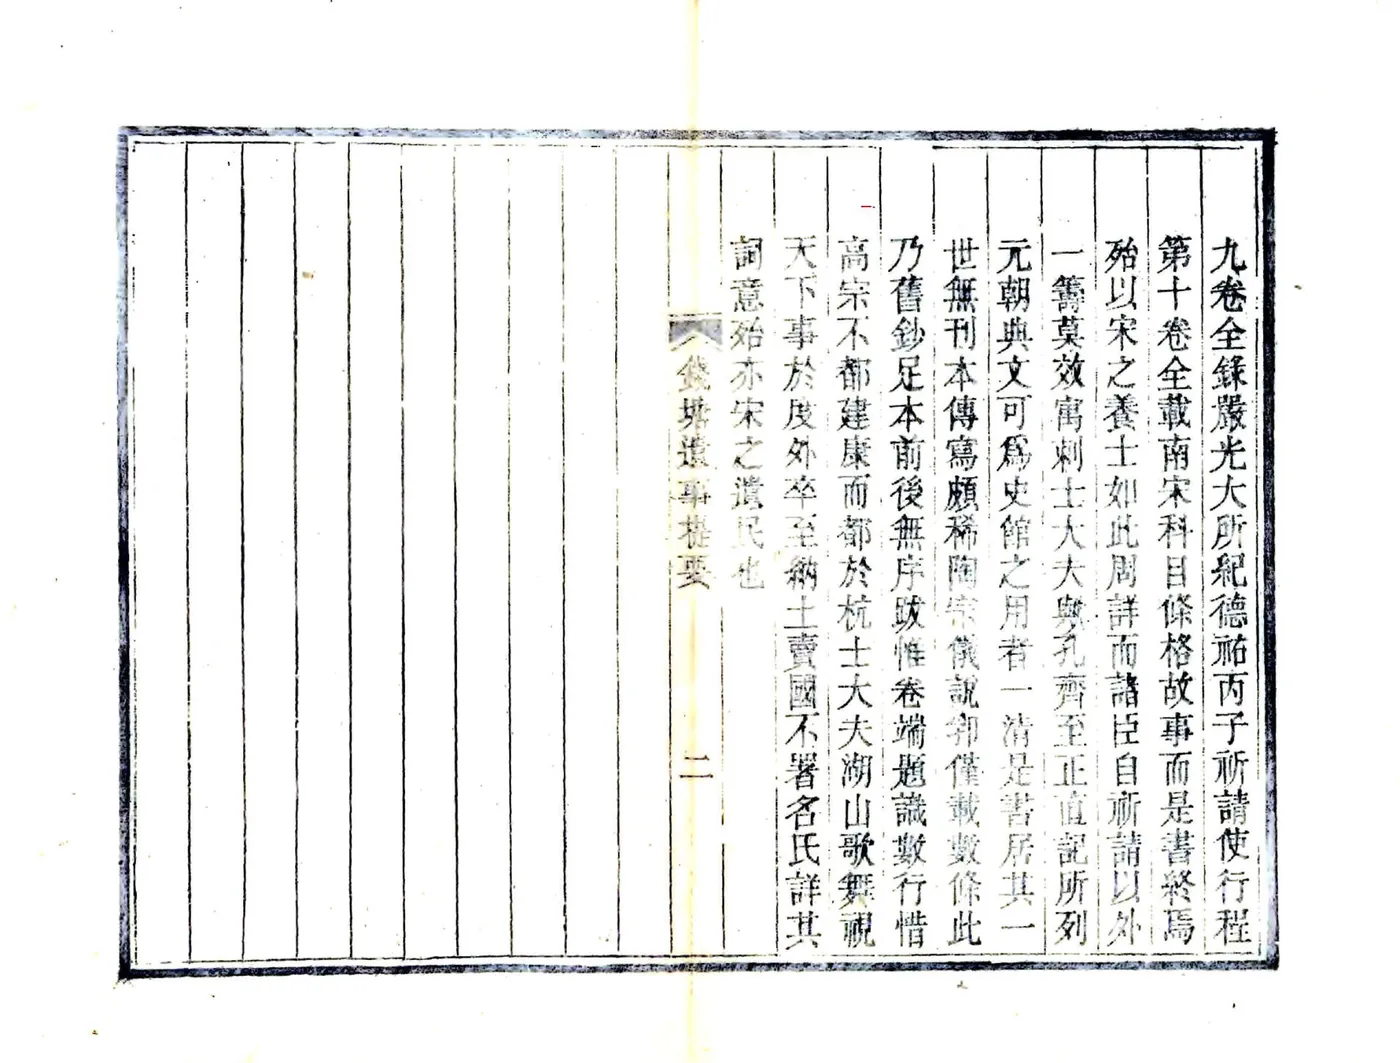 九卷全錄嚴光大所紀德祐丙子祈請使行程
第十卷全載南宋科目條格故事而是書終焉
殆以宋之養士如此周詳而諸臣自祈請以外
一籌莫效寓刺士大夫歟孔齊至正直記所列
元朝典文可爲史館之用者一清是書居其一
世無刊本傳寫頗稀陶宗儀說郛僅載數條此
乃舊鈔足本前後無序跋惟卷端題識數行惜
高宗不都建康而都於杭士大夫湖山歌舞視
天下事於度外卒至納土賣國不署名氏詳其
詞意殆亦宋之遺民也
錢塘遺事提要
二